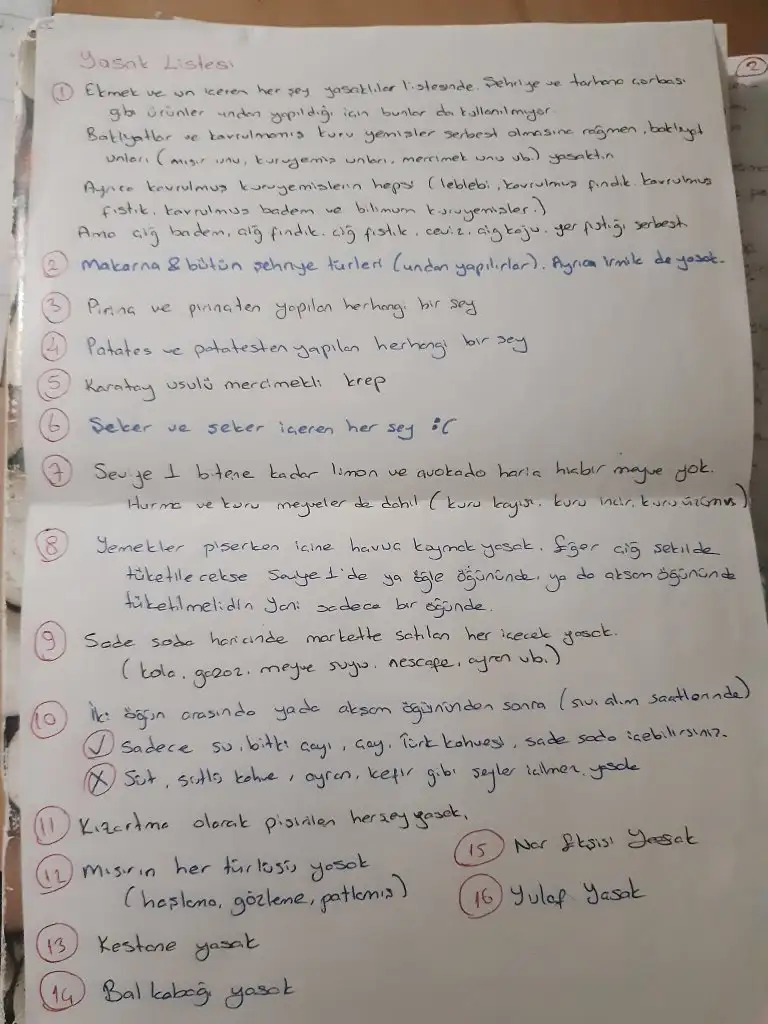 Yasak Listesi
1 Ekmek ve un içeren her şey yasaklılar listesinde. Şehriye ve tarhana çorbası
gibi ürünler undan yapıldığı için bunlar da kullanılmıyor.
Bakliyatlar ve kavrulmamış kuru yemişler serbest olmasına rağmen, bakliyat
unları (mısır unu, kuruyemiş unları, mercimek unu vb.) yasaktır.
Ayrıca kavrulmuş kuruyemişlerin hepsi (leblebi, kavrulmuş fındık. kavrulmuş
fıstık, kavrulmuş badem ve bilimum kuruyemişler.)
Ama çiğ badem, çiğ fındık. çiğ fıstık, ceviz, çiğ kaju, yer fıstığı serbest
2 Makarna & bütün şehriye türleri (undan yapılırlar). Ayrıca irmik de yasak.
3 Pirinç ve pirinçten yapılan herhangi bir şey
4 Patates ve patatesten yapılan herhangi bir şey
5 Karatay usulü mercimekli krep
6 Şeker ve şeker içeren her şey :(
7 Seviye 1 bitene kadar limon ve avokado hariç hiçbir meyve yok.
Hurma ve kuru meyveler de dahil (kuru kayısı, kuru incir, kuru üzüm vs)
8 Yemekler pişerken içine havuç koymak yasak. Eğer çiğ şekilde
tüketilecekse Seviye 1'de ya öğle öğününde, ya da akşam öğününde
tüketilmelidir. Yani sadece bir öğünde.
9 Sade soda haricinde markette satılan her içecek yasak.
(kola, gazoz, meyve suyu, nescape, ayran vb.)
10 İki öğün arasında yada akşam öğününden sonra (sıvı alım saatlerinde)
✓ Sadece su, bitki çayı, çay, Türk kahvesi, sade soda içebilirsiniz.
X Süt, sütlü kahve, ayran, kefir gibi şeyler içilmez,
11 Kızartma olarak pişirilen herşey yasak.
12 Mısırın her türlüsü yasak
(haşlama, gözleme, patlamış)
13 Kestane yasak
14 Bal kabağı yasak
15 Nar Ekşisi Yasak
16 Yulaf Yasak
2